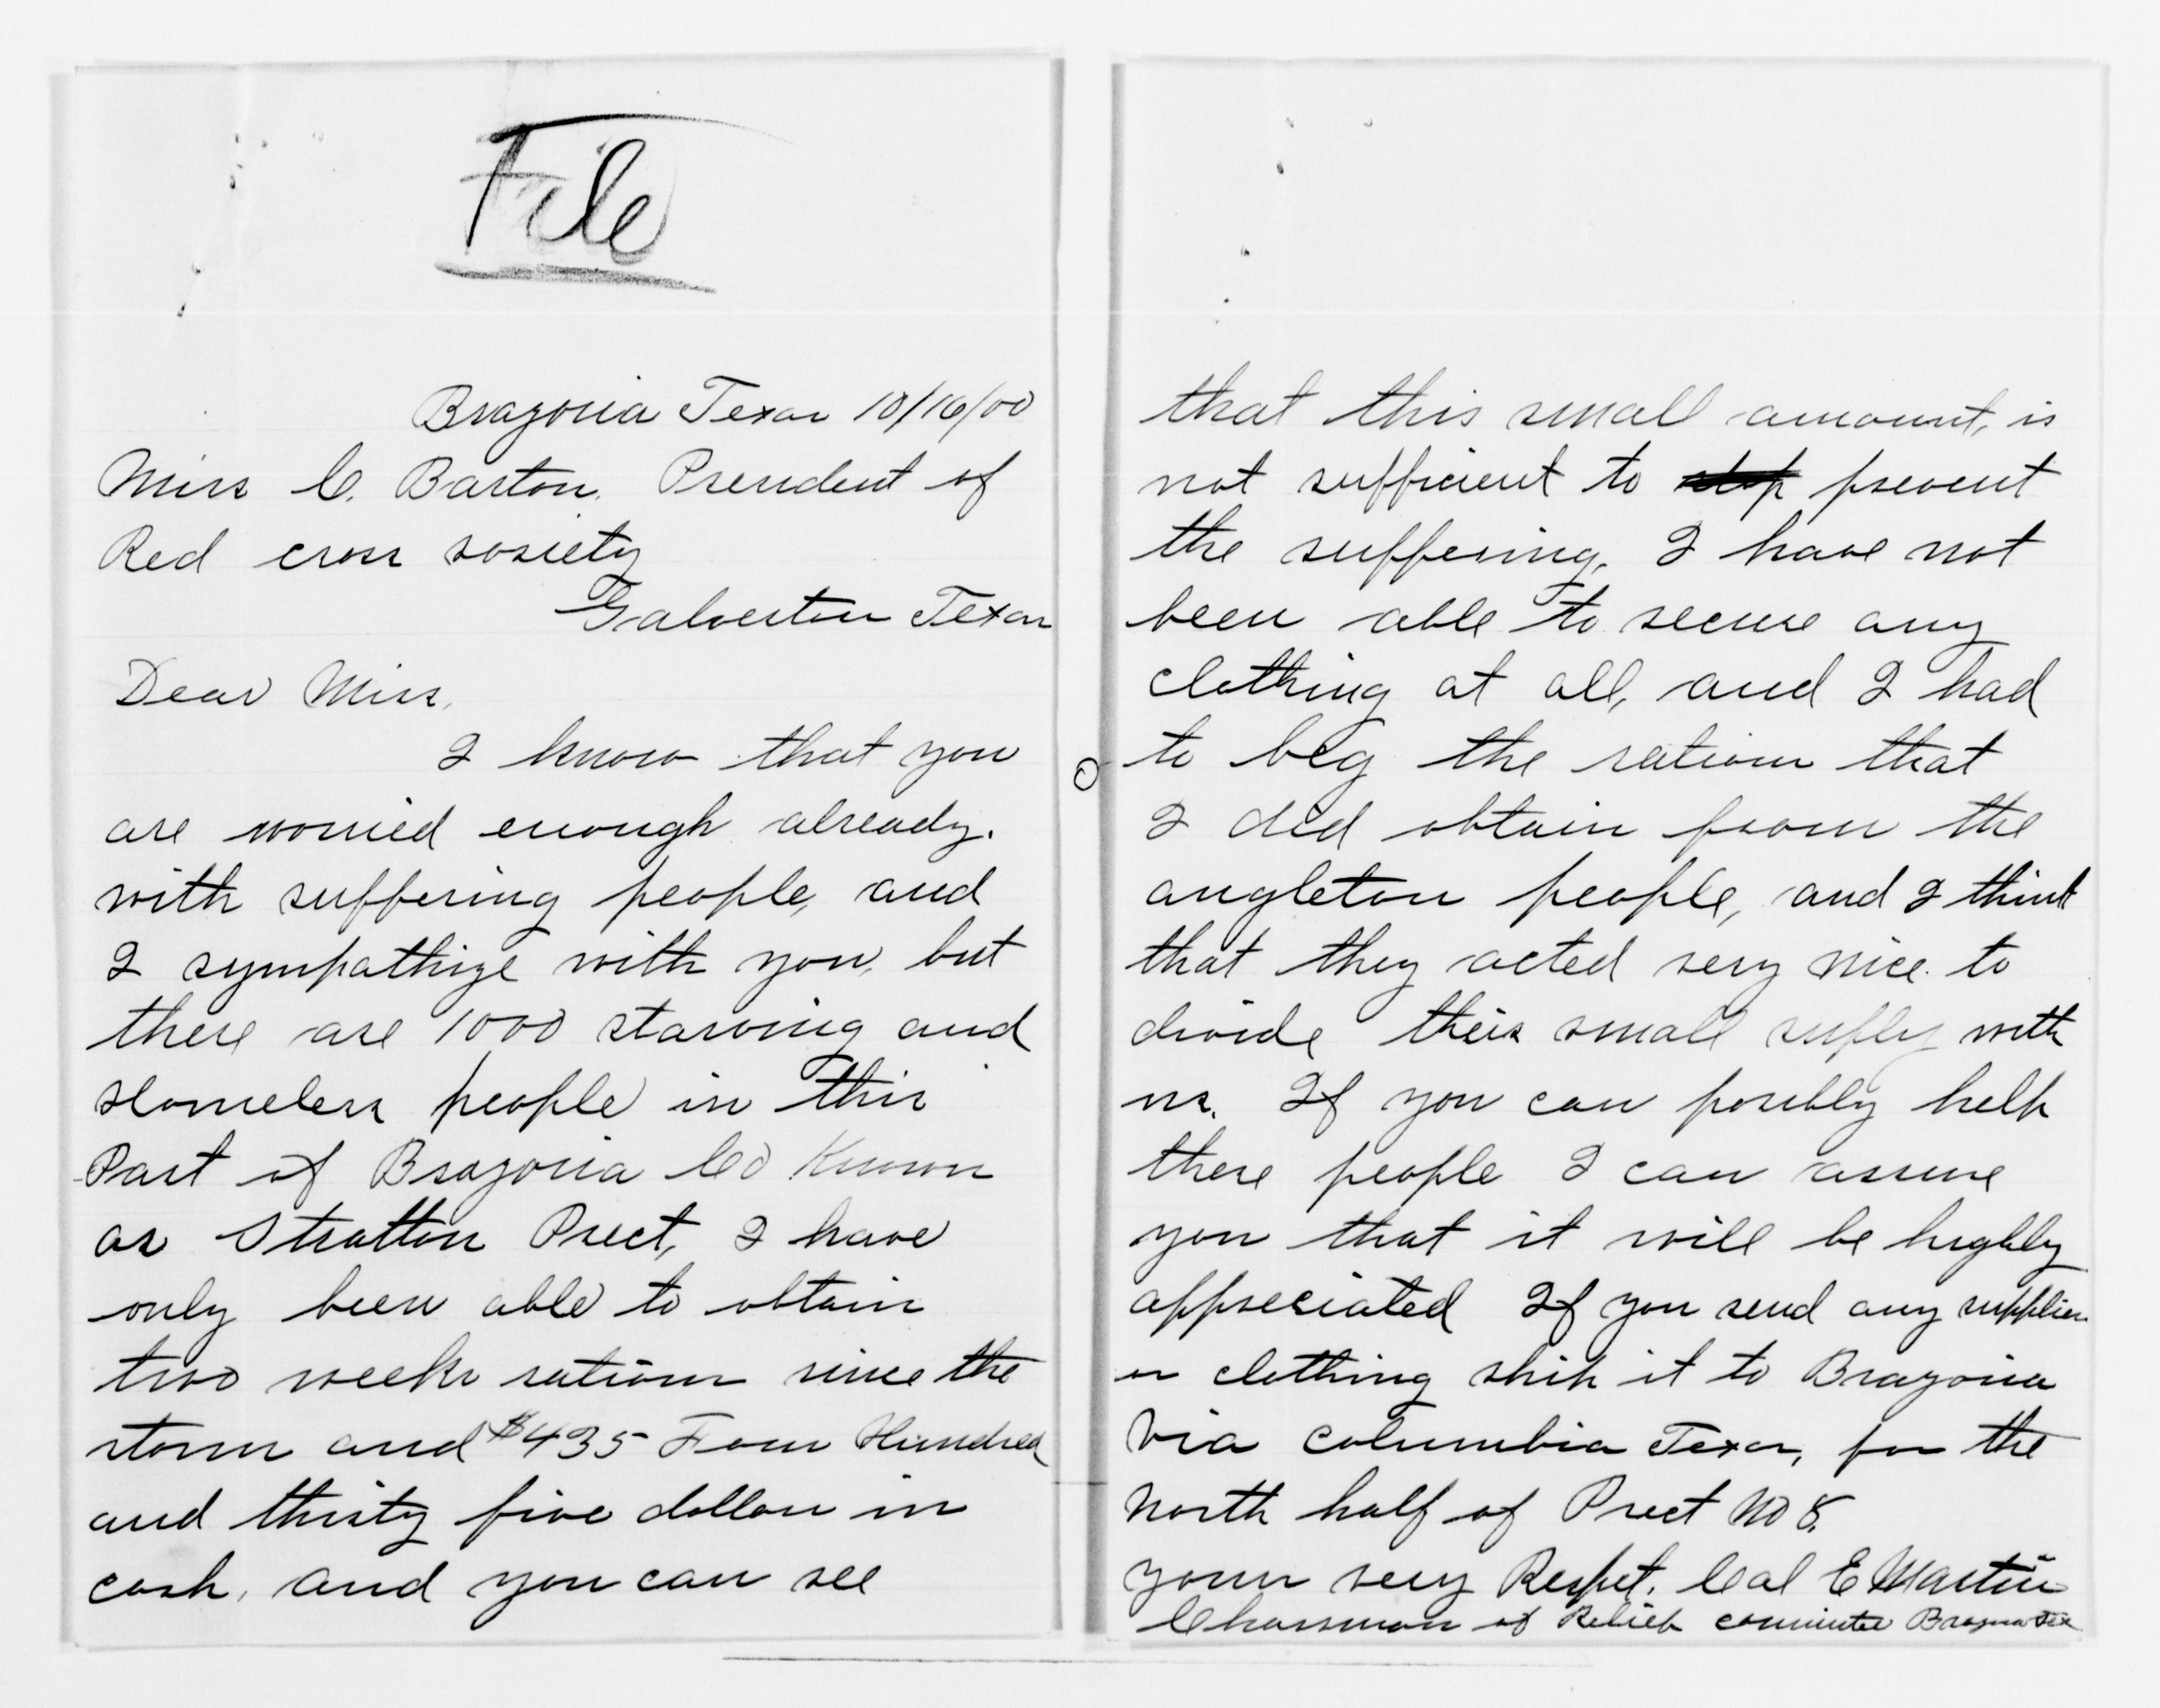 File
Brazoria Texas 10/16/00
Miss C. Barton. President of
Red cross society
Galveston Texas
Dear Miss,
I know that you
are worried enough already.
with suffering people, and
I sympathize with you, but
there are 1000 starving and
Homeless people in this
Part of Brazoria Co Known
as Stratton Prect, I have
only been able to obtain
two weeks rations since the
storm and $435 Four Hundred
and thirty five dollars in
cash, and you can see
that this small amount, is
not sufficient to stop prevent
the suffering, I have not
been able to secure any
clothing at all, and I had
to beg the rations that
I did obtain from the
angleton people, and I think
that they acted very nice to
divide their small suply with
us. If you can possibly help
these people I can assure
you that it will be highly
appreciated If you send any supplies
or clothing ship it to Brazoria
Via Columbia Texas, for the
North half of Prect No 8.
yours very Respet. Cal E Martin
Chairman of Relief committee Brazoria Tex